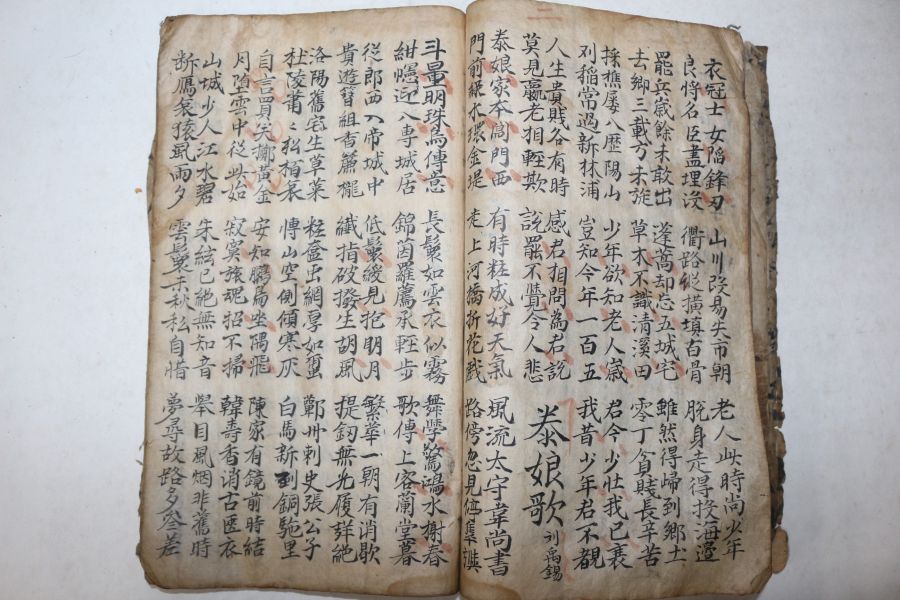 衣冠士女陷鋒刃
良將名臣盡埋没
山川改易失市朝
衢路縱橫填白骨
老人此時尚少年
脫身走得投海邊
罷兵歲餘未敢出
去鄉三載方來旋
蓬蒿却忘五城宅
草木不識清溪田
雖然得歸到鄉土
零丁貧賤長辛苦
採樵屢入歷陽山
刈稻常過新林浦
少年欲知老人歲
豈知今年一百五
君今少壯我已衰
我昔少年君不覩
人生貴賤各有時
莫見羸老相輕欺
感君相問為君說
說罷不覺令人悲
泰娘歌 刘禹錫
泰娘家本閶門西
門前綠水環金堤
有時粧成好天氣
走上河橋折花戱
風流太守韋尚書
路傍忽見停隼旟
斗量明珠鳥傳意
紺幰迎入專城居
長鬟如雲衣似霧
錦茵羅薦承輕步
舞學驚鴻水榭春
歌傳上客蘭堂暮
從郎西入帝城中
貴遊簪組香簾櫳
低鬟緩見抱明月
纖指破撥生胡風
繁華一朝有消歇
提釼無光履聲絕
洛陽舊宅生草萊
杜陵蕭蕭松栢哀
粧奩虫網厚如繭
博山空側傾寒灰
鄭州刺史張公子
白馬新到銅駞里
自言買笑擲黃金
月墮雲中從此始
安知鵩鳥坐隅飛
寂寞旅魂招不掃
陳家有鏡前時結
韓壽香消古匧衣
山城少人江水碧
断鴈哀猿風雨夕
朱絃已絕無知音
雲鬟未秋私自惜
舉目風烟非舊時
夢尋故路多參差